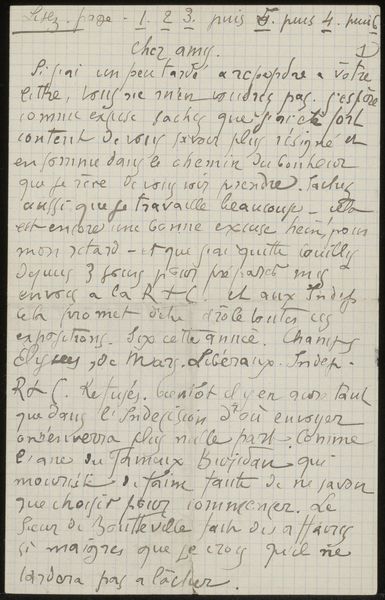 Lisez page - 1. 2 3. puis 5. puis 4. puis 6
1
Cher amis.
Si j'ai un peu tardé a repondre a votre
lettre, vous ne m'en voudrez pas. j'espère
comme excuse sachez que j'ai été fort
content de vous savoir plus résigné et
en somme dans le chemin du bonheur
que je rêve de vous voir prendre. Sachez
aussi que je travaille beaucoup -
est encore une bonne excuse hein, pour
mon retard - et que j'ai quitté
depuis 3 jours pour préparer mes
envois a la R+C. et aux Indep
cela promet d'être drôle toutes ces
expositions. Six cette année. Champs
Elysées, de Mars. Libéraux. Indep.
R+C. Refusés. bientot il y en aura tant
que dans l'Indécision d'où envoyer
on n'enverra plus nulle part. Comme
l'ane du fameux Buridan qui
mourut de faim faute de ne savoir
que choisir pour commencer. Le
Sieur de Boutteville fait des affaires
si maigres que je crois qu'il ne
tardera pas a lâcher.